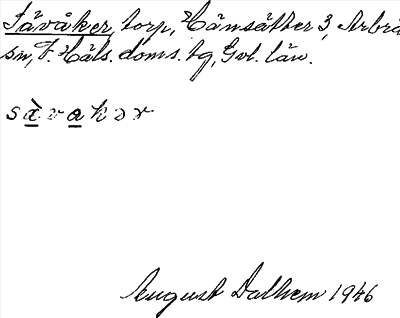 Sävåker, torp, Hänsätter 3, Arbrå
sn, V. Häls. doms. tg, Gvl. län.
sàvakər
August Dalhem 1946